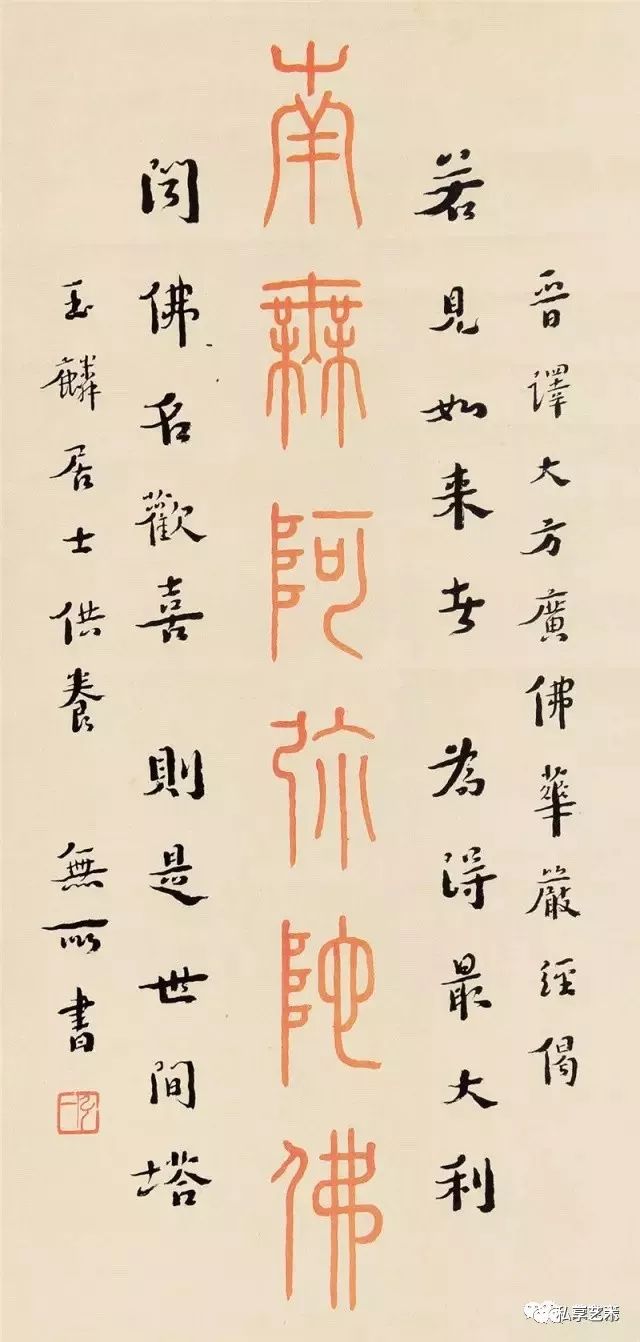 晉譯大方廣佛華嚴經偈
若見如来者 為得最大利
南無阿弥陀佛
聞佛名歡喜 則是世間塔
玉麟居士供養 無所書
弘一
私享艺术